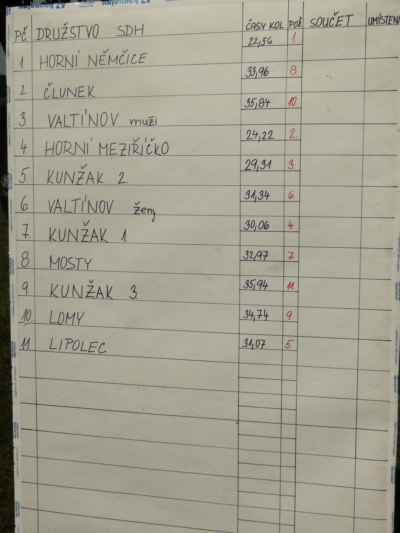 PČ DRUŽSTVO SDH ČASY KOL POŘ SOUČET UMÍSTĚNÍ
1 HORNÍ NĚMČICE 22,56 1
2 ČLUNEK 33,96 8
3 VALTÍNOV muži 35,84 10
4 HORNÍ MEZIŘÍČKO 24,22 2
5 KUNŽAK 2 29,31 3
6 VALTÍNOV ženy 31,34 6
7 KUNŽAK 1 30,06 4
8 MOSTY 32,97 7
9 KUNŽAK 3 35,94 11
10 LOMY 34,74 9
11 LIPOLEC 31,07 5